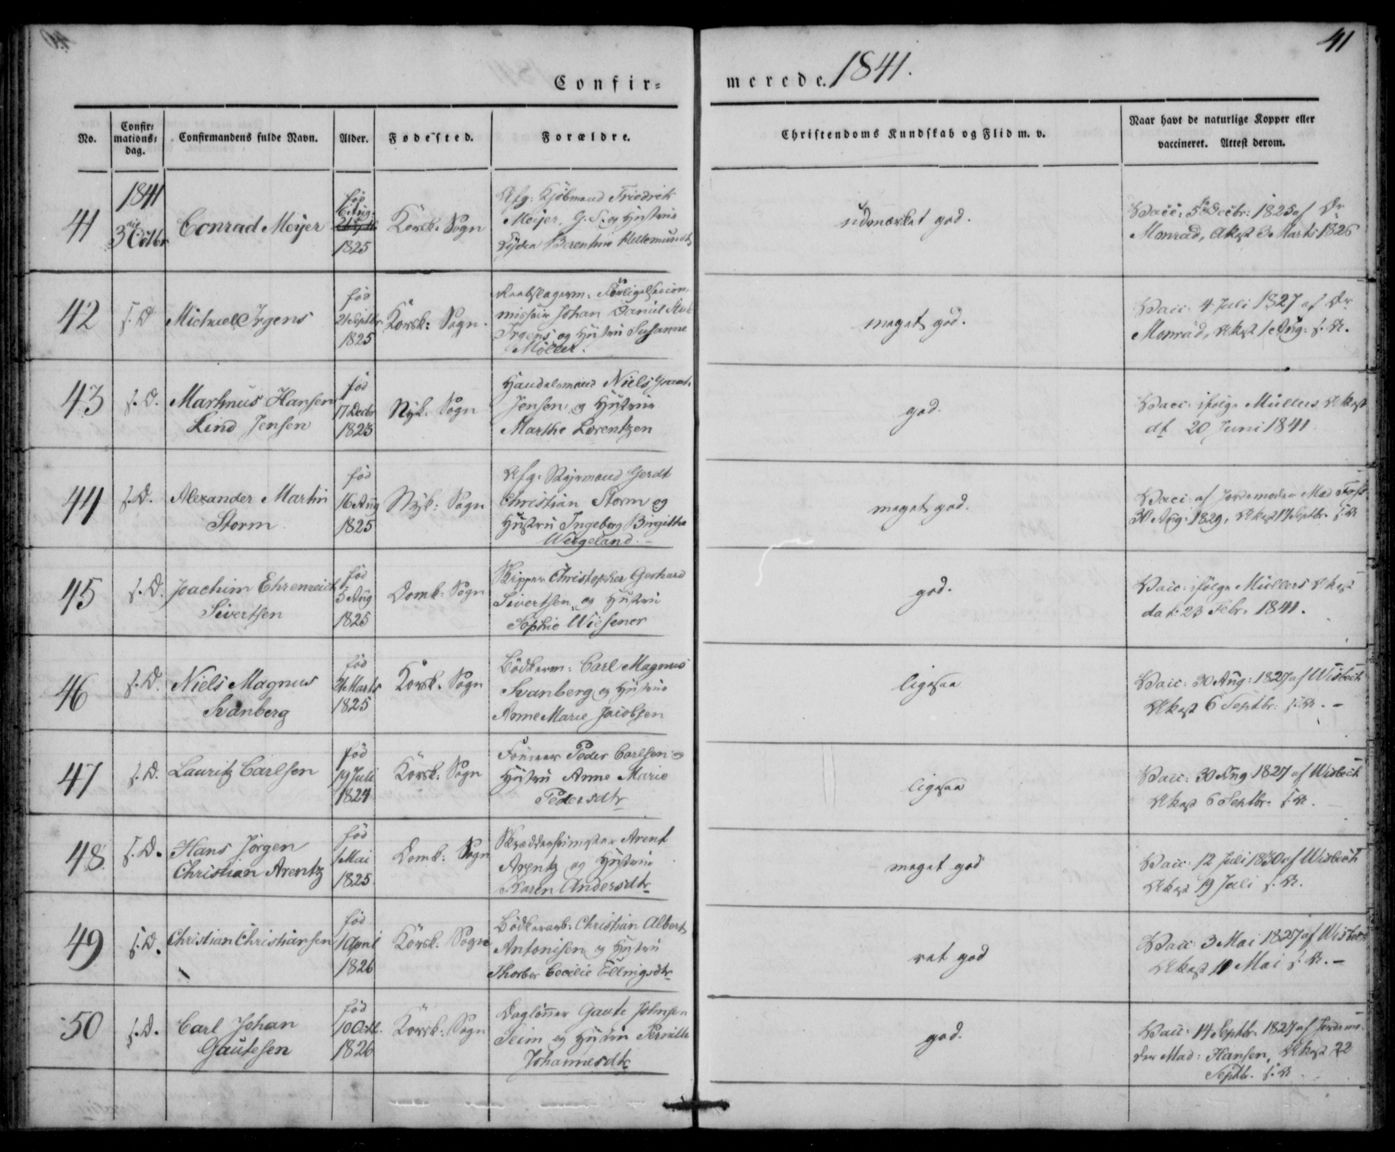 41
Confir=
merede. 1841.
No.
Confir=
mations=
dag.
Confirmandens fulde Navn.
Alder.
Fødested.
Forældre.
Christendoms Kundskab og Flid m. v.
Naar havt de naturlige Kopper eller
vaccineret. Attest derom.
1841
41
3 Octbr
Conrad Meyer
fød
6 Aug
1825
Korsk: Sogn
Afg. Kjøbmand Friedrik
Meyer, og Hustrue
Berentine
udmærket god.
Vacc: 5 Decbr: 1825 af Dr
Monrad, Attest 3 Marts 1826
42
s. D.
Michael Irgens
fød
21 Septbr
1825
Korsk: Sogn.
Johan Daniel
Irgens og Hustru Susanne
Møller.
meget god.
Vacc: 4 Juli 1827 af Dr
Monrad, Attest 1 Aug: s. A.
43
s. D.
Martinus Hansen
Lind Jensen
fød
17 Decbr
1823
Nyk: Sogn
Handelsmand Niels
Jensen og Hustrue
Marthe Lorentzen
god.
Vacc: ifølge Müllers Attest
dt 20 Juni 1841.
44
s. D.
Alexander Martin
Storm
fød
16 Aug
1825
Nyk: Sogn
Afg: Styrmand Gerdt
Christian Storm og
Hustru Ingeborg Birgitha
Wergeland. -
meget god.
Vacc: af Jordemoder Mad
30 Aug: 1829, Attest 17 Septbr. s. A
45
s. D.
Joachim Ehrenreich
Sivertsen
fød
5 Aug
1825
Domk: Sogn
Skipper Christopher Gerhard
Sivertsen og Hustru
Sophie Wiesener
god.
Vacc: ifølge Müllers Attest
dat: 23 Febr. 1841.
46
s. D.
Niels Magnus
Svanberg
fød
24 Marts
1825
Korsk: Sogn
Bødkerm: Carl Magnus
Svanberg og Hustrue
Anne Marie Jacobsen
ligesaa
Vacc: 30 Aug: 1827 af Wisbech
Attest 6 Septbr: s. A. -
47
s. D.
Lauritz Carlsen
fød
19 Juli
1824
Korsk: Sogn
Peder Carlsen og
Hustru Anne Marie
Pedersdtr
ligesaa
Vacc: 30 Aug 1827 af Wisbech
Attest 6 Septbr. s. A.
48
s. D.
Hans Jørgen
Christian Arentz
fød
1 Mai
1825
Domk: Sogn
Skreddermester Arent
Arentz og Hustrue
Karen Andersdtr
meget god
Vacc: 12 Juli 1830 af Wisbech
Attest 19 Juli s. A.
49
s. D.
Christian Christiansen
fød
1 April
1826
Korsk: Sogn
Bødkerarb: Christian Albert
Antonisen og Hustru
Cecilie Ellingsdtr
ret god
Vacc: 3 Mai 1827 af Wisbech
Attest 11 Mai s. A. -
50
s. D.
Carl Johan
Gautesen
fød
10 Octl.
1826
Korsk: Sogn
Dagløner Gaute Johnsen
Seim og Hustru Pernille
Johannesdtr
god.
Vacc: 14 Septbr. 1827 af Jordemo
der Mad: Hansen, Attest 22
Septbr. s. A.